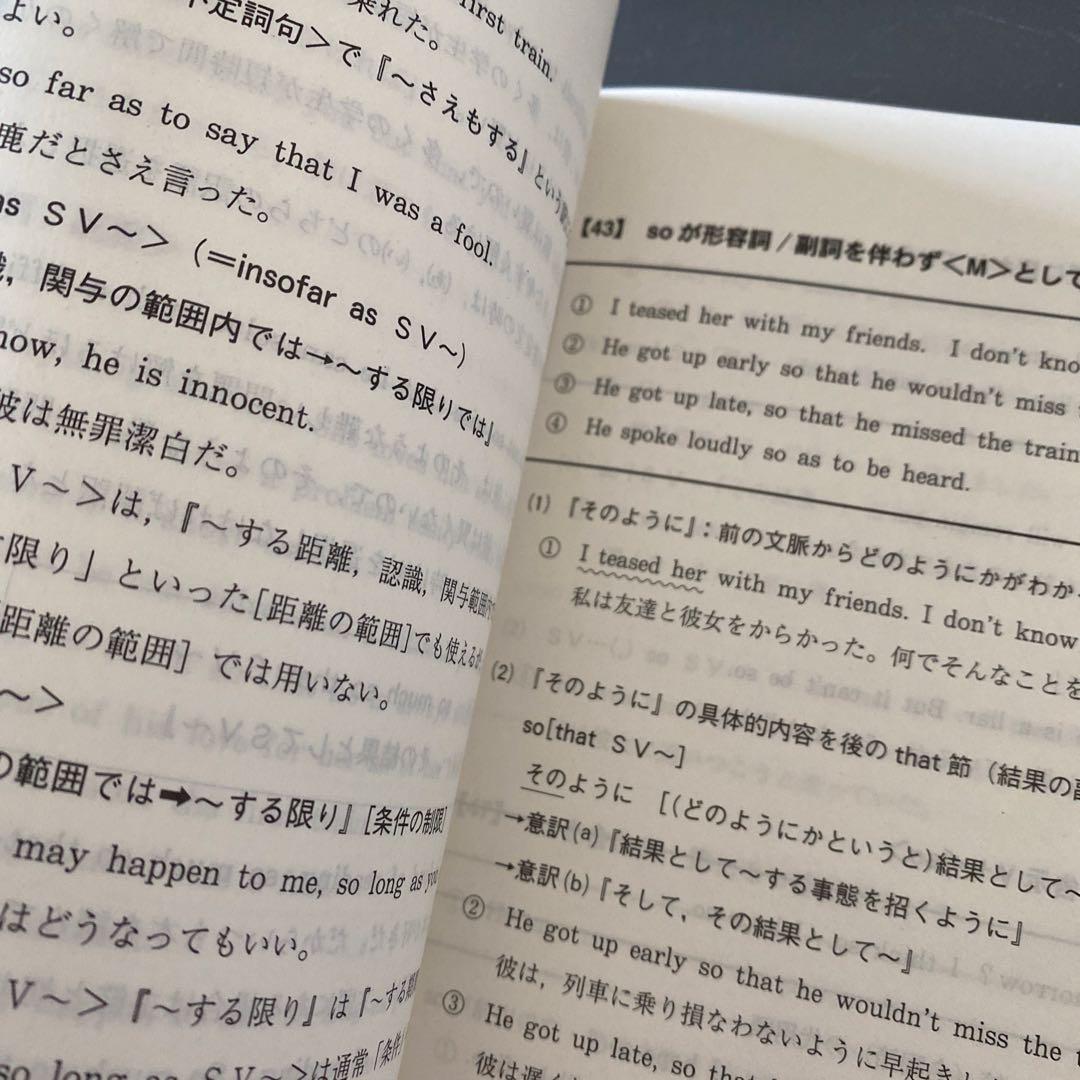 first train.
乗れた。
不定詞句＞で『～さえもする』という
よい。
so far as to say that I was a fool.
鹿だとさえ言った。
as S V～＞ (＝insofar as S V～)
，関与の範囲内では→～する限りでは』
now, he is innocent.
彼は無罪潔白だ。
V～＞は，『～する距離，認識，関与範囲内
限り」といった[距離の範囲]でも使えるが
距離の範囲］では用いない。
～＞
の範囲では➡～する限り』[条件の制限]
may happen to me, so long as you
はどうなってもいい。
V～＞『～する限り』は『～する
so long as S V～＞は通常「条件
【43】 soが形容詞／副詞を伴わず＜M＞として
① I teased her with my friends. I don't kno
② He got up early so that he wouldn't miss t
③ He got up late, so that he missed the train
④ He spoke loudly so as to be heard.
(1) 『そのように』：前の文脈からどのようにかがわか
① I teased her with my friends. I don't know
私は友達と彼女をからかった。何でそんなことを
(2) 『そのように』の具体的内容を後の that 節（結果の副
so[that S V～]
そのように [(どのようにかというと)結果として～
→意訳(a)『結果として～する事態を招くように』
→意訳(b)『そして，その結果として～』
② He got up early so that he wouldn't miss the t
彼は，列車に乗り損なわないように早起きし
③ He got up late, so that
彼は遅く